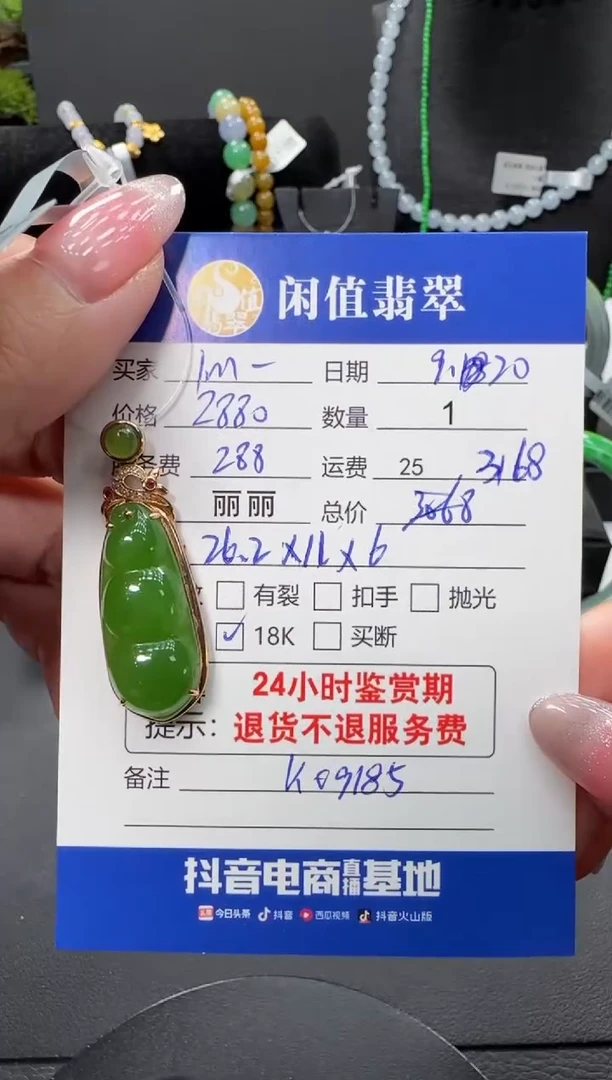 闲值翡翠
买家 1m一 日期 9.20
价格 2880 数量 1
务费 288 运费 25 3168
丽丽 总价 3068
26.2×11×6
有裂 扣手 抛光
✓ 18K 买断
24小时鉴赏期
提示：退货不退服务费
备注 K09185
抖音电商直播基地
今日头条 抖音 西瓜视频 抖音火山版